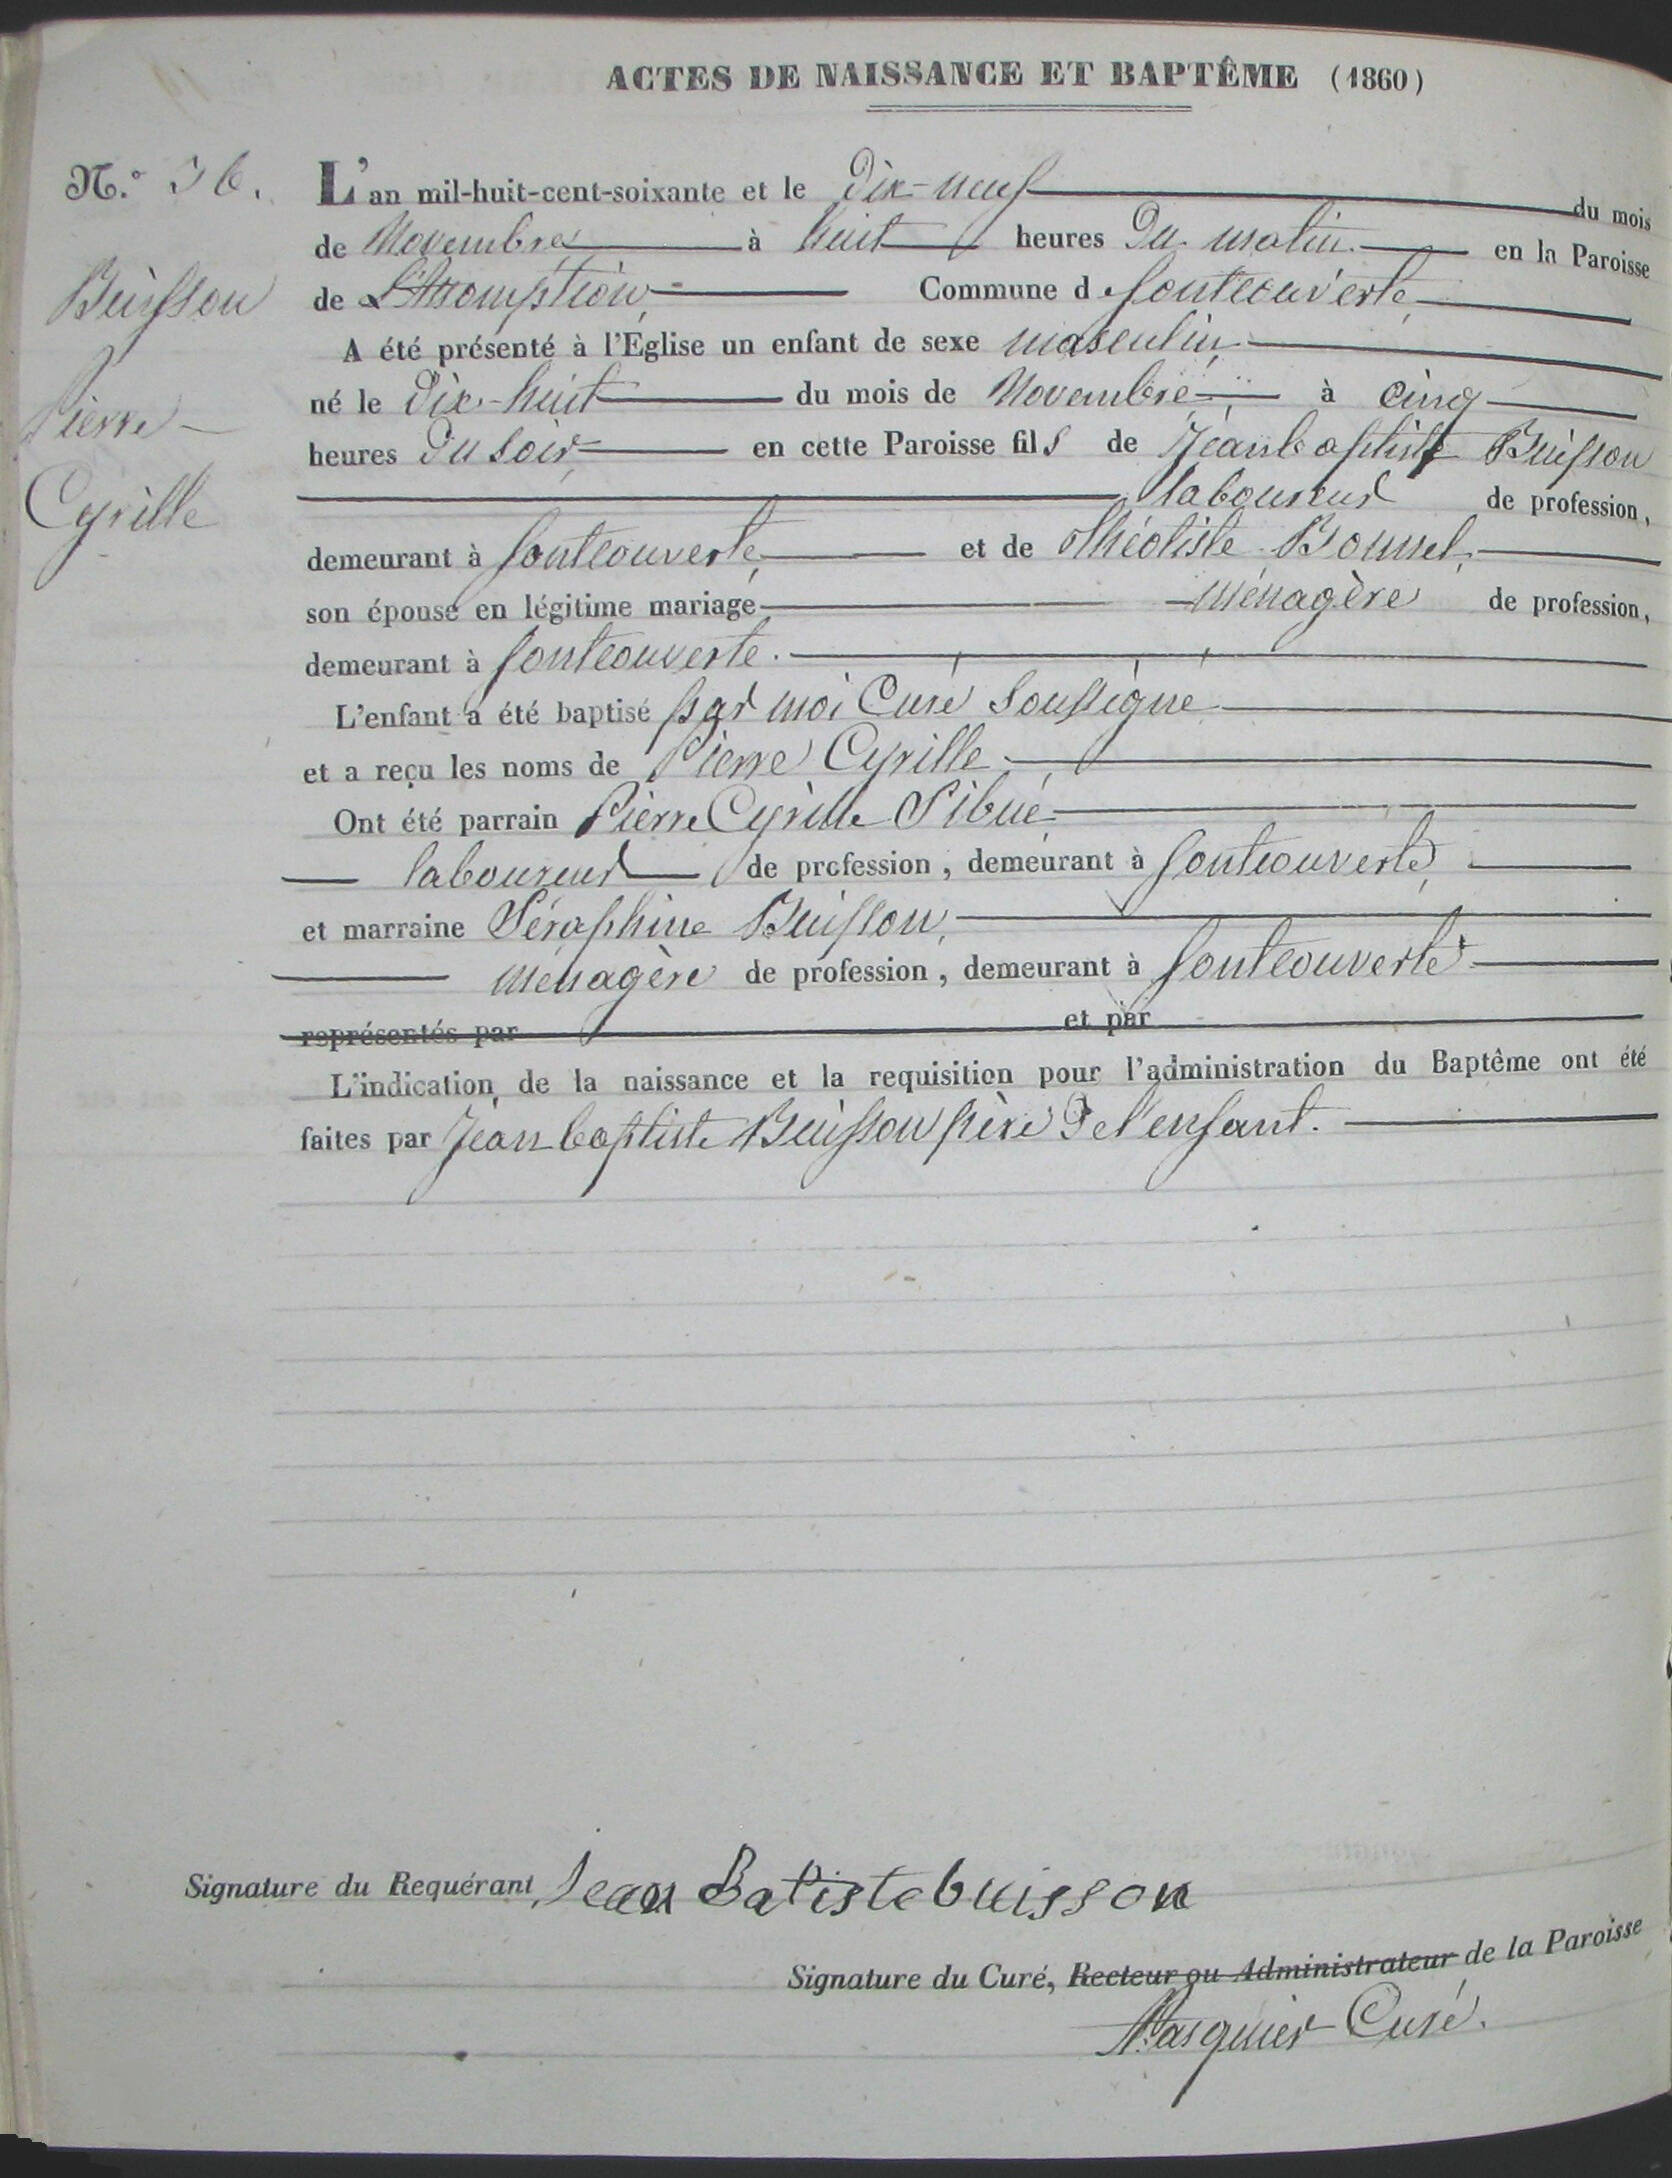 ACTES DE NAISSANCE ET BAPTÊME (1860)
N.° 36.
Buisson
Pierre
Cyrille
L'an mil-huit-cent-soixante et le dix-neuf du mois
de Novembre à huit heures du matin en la Paroisse
de L'Assomption Commune de Fontcouverte
A été présenté à l'Église un enfant de sexe masculin
né le dix-huit du mois de Novembre à cinq
heures du soir en cette Paroisse fils de Jean baptiste Buisson
laboureur de profession,
demeurant à fontcouverte et de Théotiste Bonnel,
son épouse en légitime mariage ménagère de profession,
demeurant à fontcouverte.
L'enfant a été baptisé par moi Curé soussigné
et a reçu les noms de Pierre Cyrille
Ont été parrain Pierre Cyrille Sibué
laboureur de profession, demeurant à fontcouverte
et marraine Séraphine Buisson,
ménagère de profession, demeurant à fontcouverte
représentés par et par
L'indication de la naissance et la requisition pour l'administration du Baptême ont été
faites par Jean baptiste Buisson père de l'enfant.
Signature du Requérant Jean Batiste buisson
Signature du Curé, Recteur ou Administrateur de la Paroisse
Pasquier Curé.